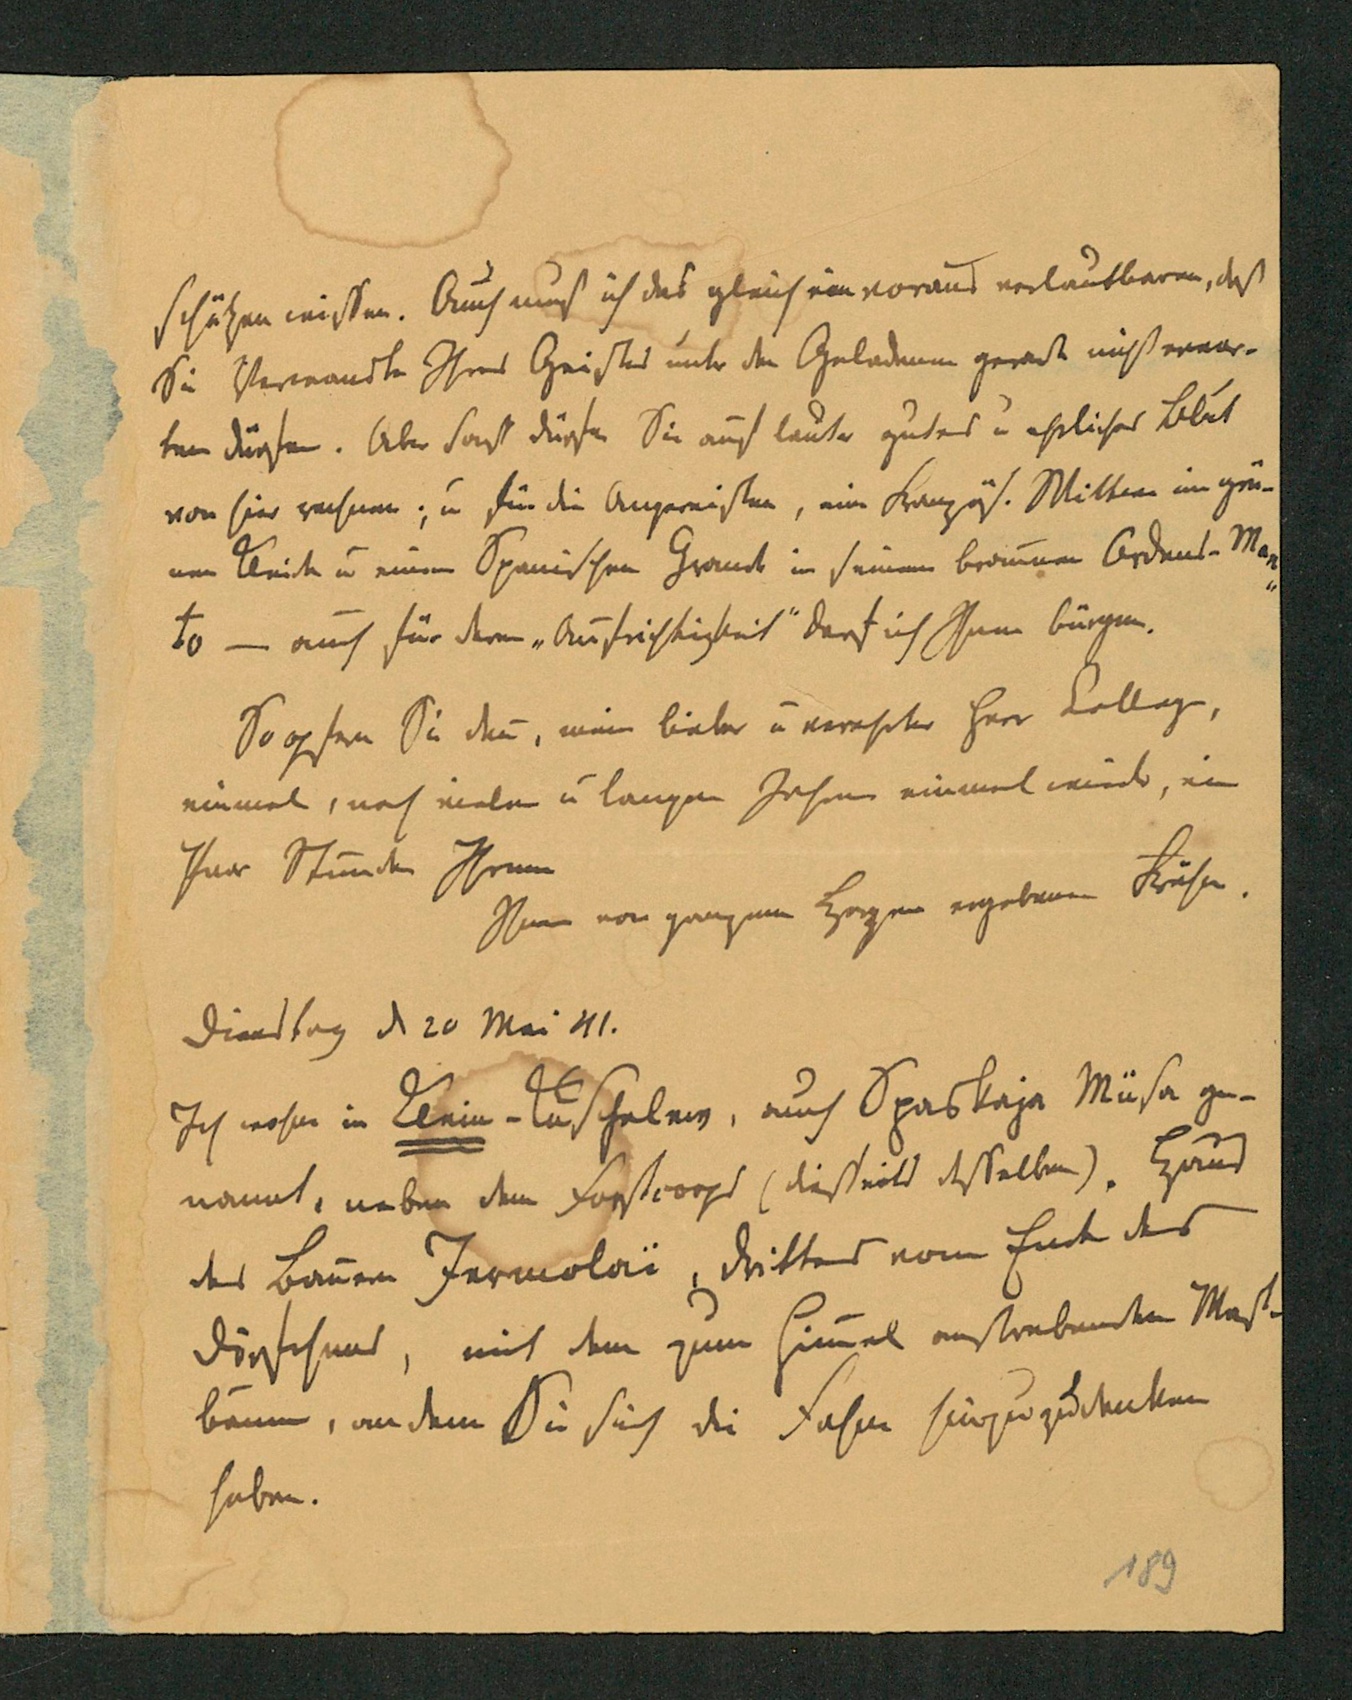 schätzen wissen. Auch muß ich das gleich im voraus verlautbaren, daß
Sie Verwandte Ihres Geistes unter den Geladenen gerade nicht erwar-
ten dürfen. Aber sonst dürfen Sie auf lauter gutes u ehrliches Blut
von hier rechnen; u für die Angereisten, ein französ. Mitten im grü-
nen Kleide u einen Spanischen Grande in seinem braunen Ordens-Man„
to — auch für deren „Aufrichtigkeit" darf ich Ihnen bürgen.
So opfern Sie deñ, mein lieber u verehrter Herr College,
einmal, nach vielen u langen Jahren einmal wieder, ein
Paar Stunden Ihrem
Ihnen von ganzem Herzen ergebenen Kruse.
Dienstag d 20 Mai 41.
Ich wohne in Klein-Kuschelew, auch Spaskaja Müsa ge-
nannt, neben dem Forstcorps (diesseits desselben). Haus
des Bauern Jermolaï, drittes vom Ende des
Dörfchens, mit dem zum Him̄el anstrebenden Mast-
baum, an dem Sie sich die Fahne hinzuzudenken
haben.
189